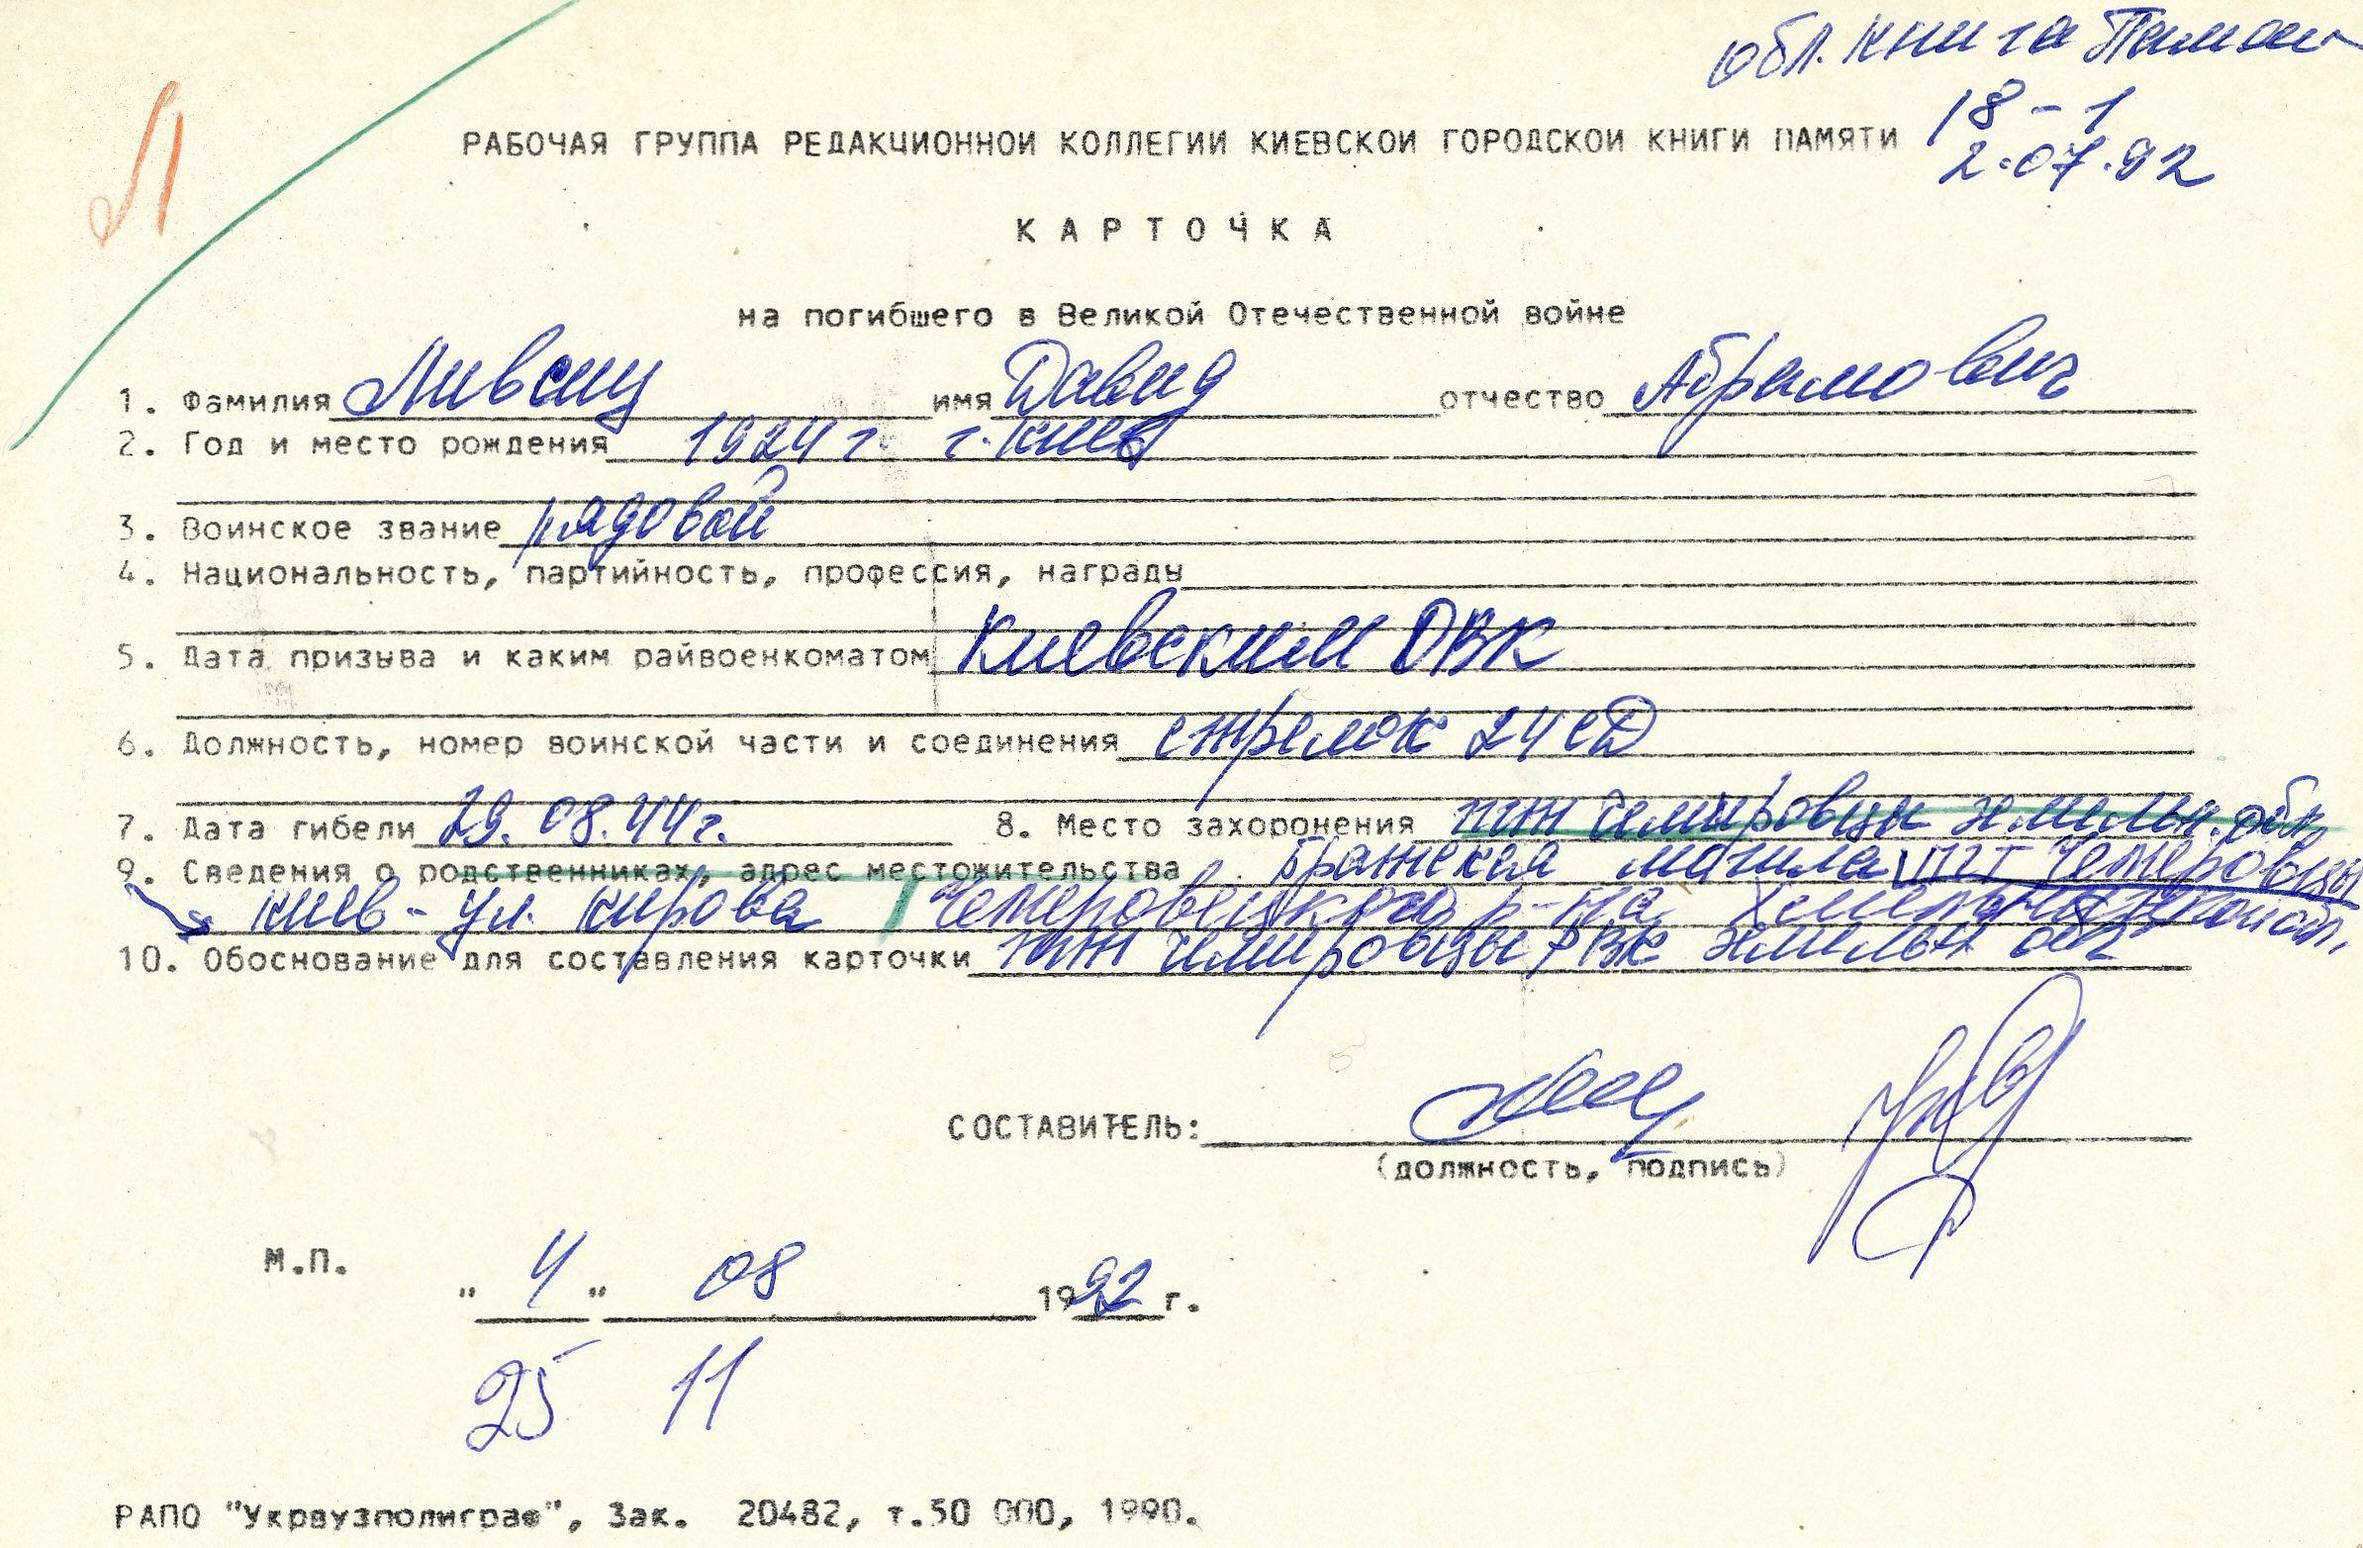 Л
обл. книга Памяти
18-1
2.07.92
РАБОЧАЯ ГРУППА РЕДАКЦИОННОЙ КОЛЛЕГИИ КИЕВСКОЙ ГОРОДСКОЙ КНИГИ ПАМЯТИ
КАРТОЧКА
на погибшего в Великой Отечественной войне
1. Фамилия Лившиц имя Давид отчество Абрамович
2. Год и место рождения 1924 г. г. Киев
3. Воинское звание рядовой
4. Национальность, партийность, профессия, награды
5. Дата призыва и каким райвоенкоматом Киевским ОВК
6. Должность, номер воинской части и соединения стрелок 24 сД
7. Дата гибели 29.08.44 г. 8. Место захоронения пгт Чемировцы обл,
9. Сведения о родственниках, адрес местожительства братская могила пгт Чемеровцы
Киев - ул. Кирова Чемеровецкого р-на Хмельницкой обл.
10. Обоснование для составления карточки пгт Чемировцы РВК обл
СОСТАВИТЕЛЬ:
(должность, подпись)
М.П. "4" 08 1992 г.
25 11
РАПО "Укрвузполиграф", Зак. 20482, т.50 000, 1990.